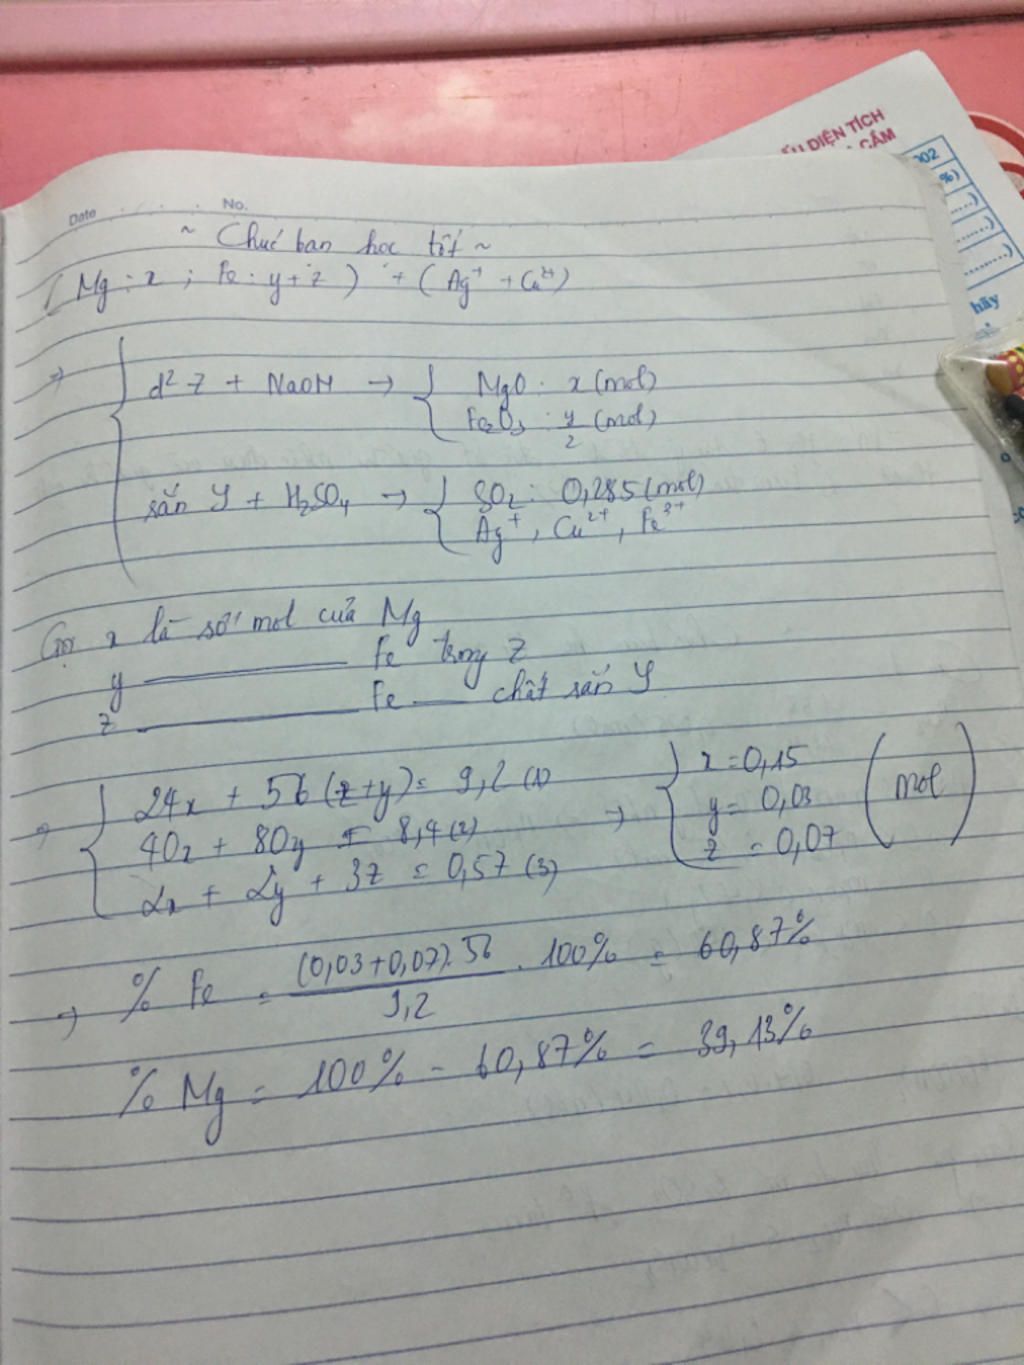 Date No.
~ Chúc bạn học tốt ~
(Mg : x ; Fe : y + z) + (Ag⁺ + Cu²⁺)
=> { d² Z + NaOH → { MgO : x (mol)
Fe₂O₃ : y/2 (mol)
rắn Y + H₂SO₄ → { SO₂ : 0,285 (mol)
Ag⁺, Cu²⁺, Fe³⁺
Gọi x là số mol của Mg
y ——— Fe trong Z
z ——— Fe — chất rắn Y
=> { 24x + 56(z+y) = 9,2 (1) → { x = 0,15
40x + 80y = 8,4 (2) y = 0,03 (mol)
2x + 2y + 3z = 0,57 (3) z = 0,07
=> % Fe = (0,03+0,07).56 / 9,2 . 100% = 60,87%
% Mg = 100% - 60,87% = 39,13%
DIỆN TÍCH
CẤM
002
%)
hãy